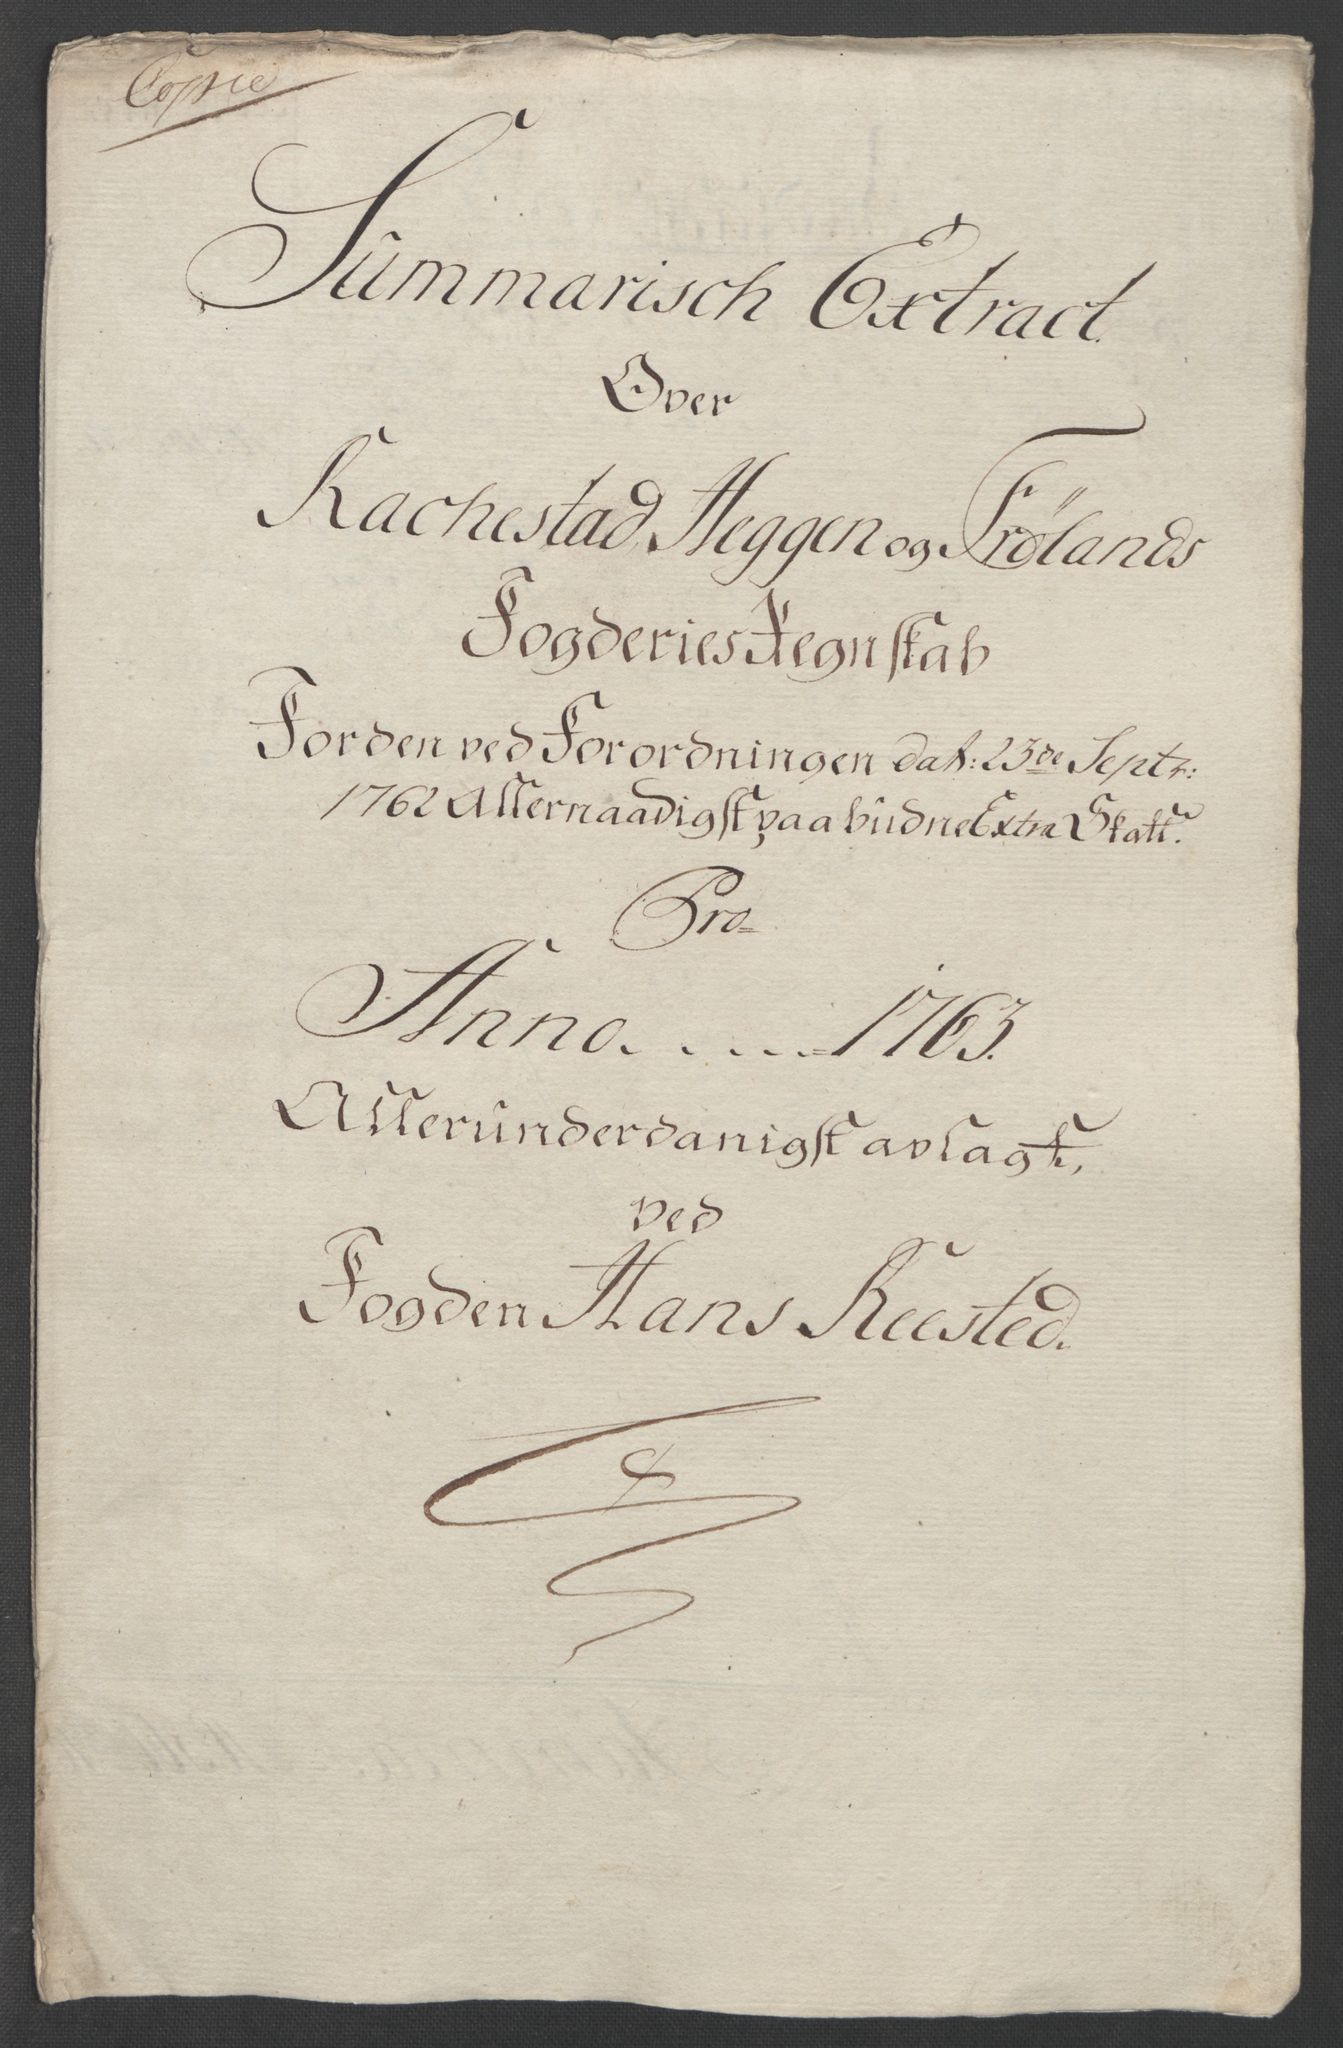 Copie
Summarisch Extract
Over
Rachestad, Heggen og Frölands
Fogderies Regnskab
For den ved Forordningen dat: 23de Septr:
1762 Allernaadigst paabudne Extra Skatt.
Pro
Anno . . . . 1763.
Allerunderdanigst avlagt,
ved
Fogden Hans Reested.